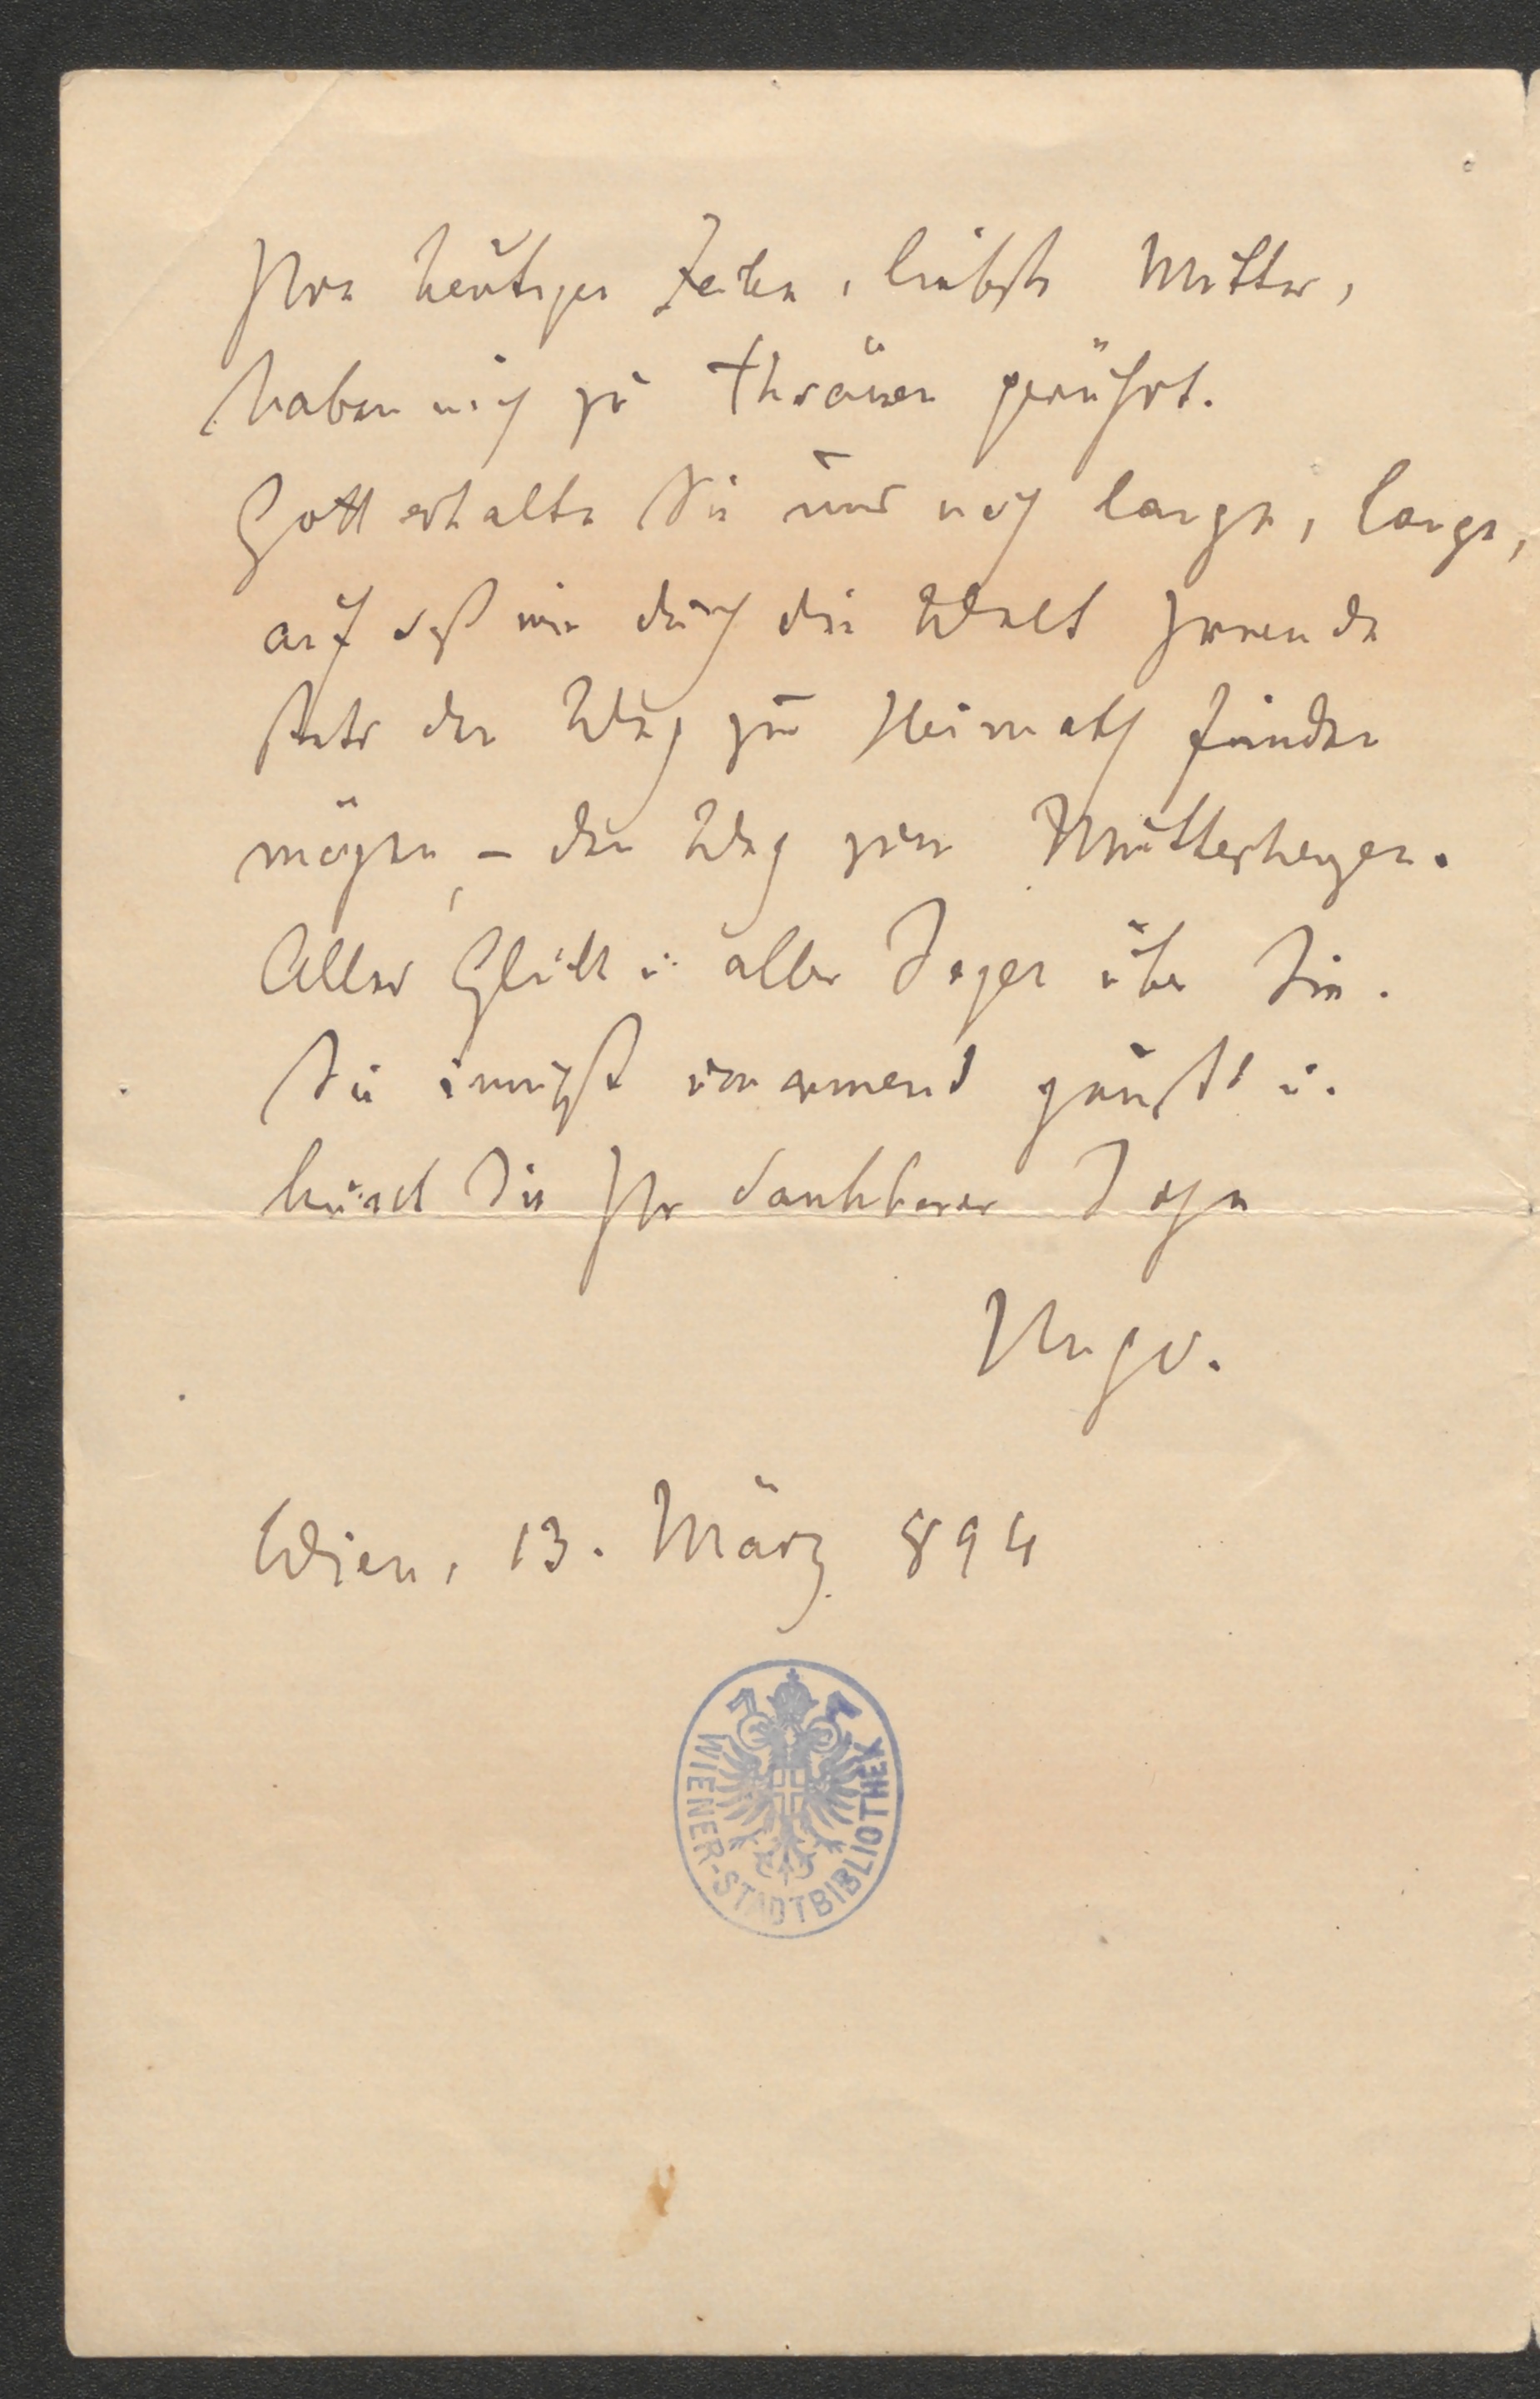 Ihre heutigen Zeilen, liebste Mutter,
haben mich zu Thränen gerührt.
Gott erhalte Sie uns noch lange, lange,
auf daß wir durch die Welt Irrende
stets den Weg zur Heimath finden
mögen, – den Weg zum Mutterherzen.
Alles Glück u. aller Segen über Sie.
Sie innigst umarmend grüßt u.
küsst Sie Ihr dankbarer Sohn
Hugo.
Wien, 13. März 894
WIENER-STADTBIBLIOTHEK